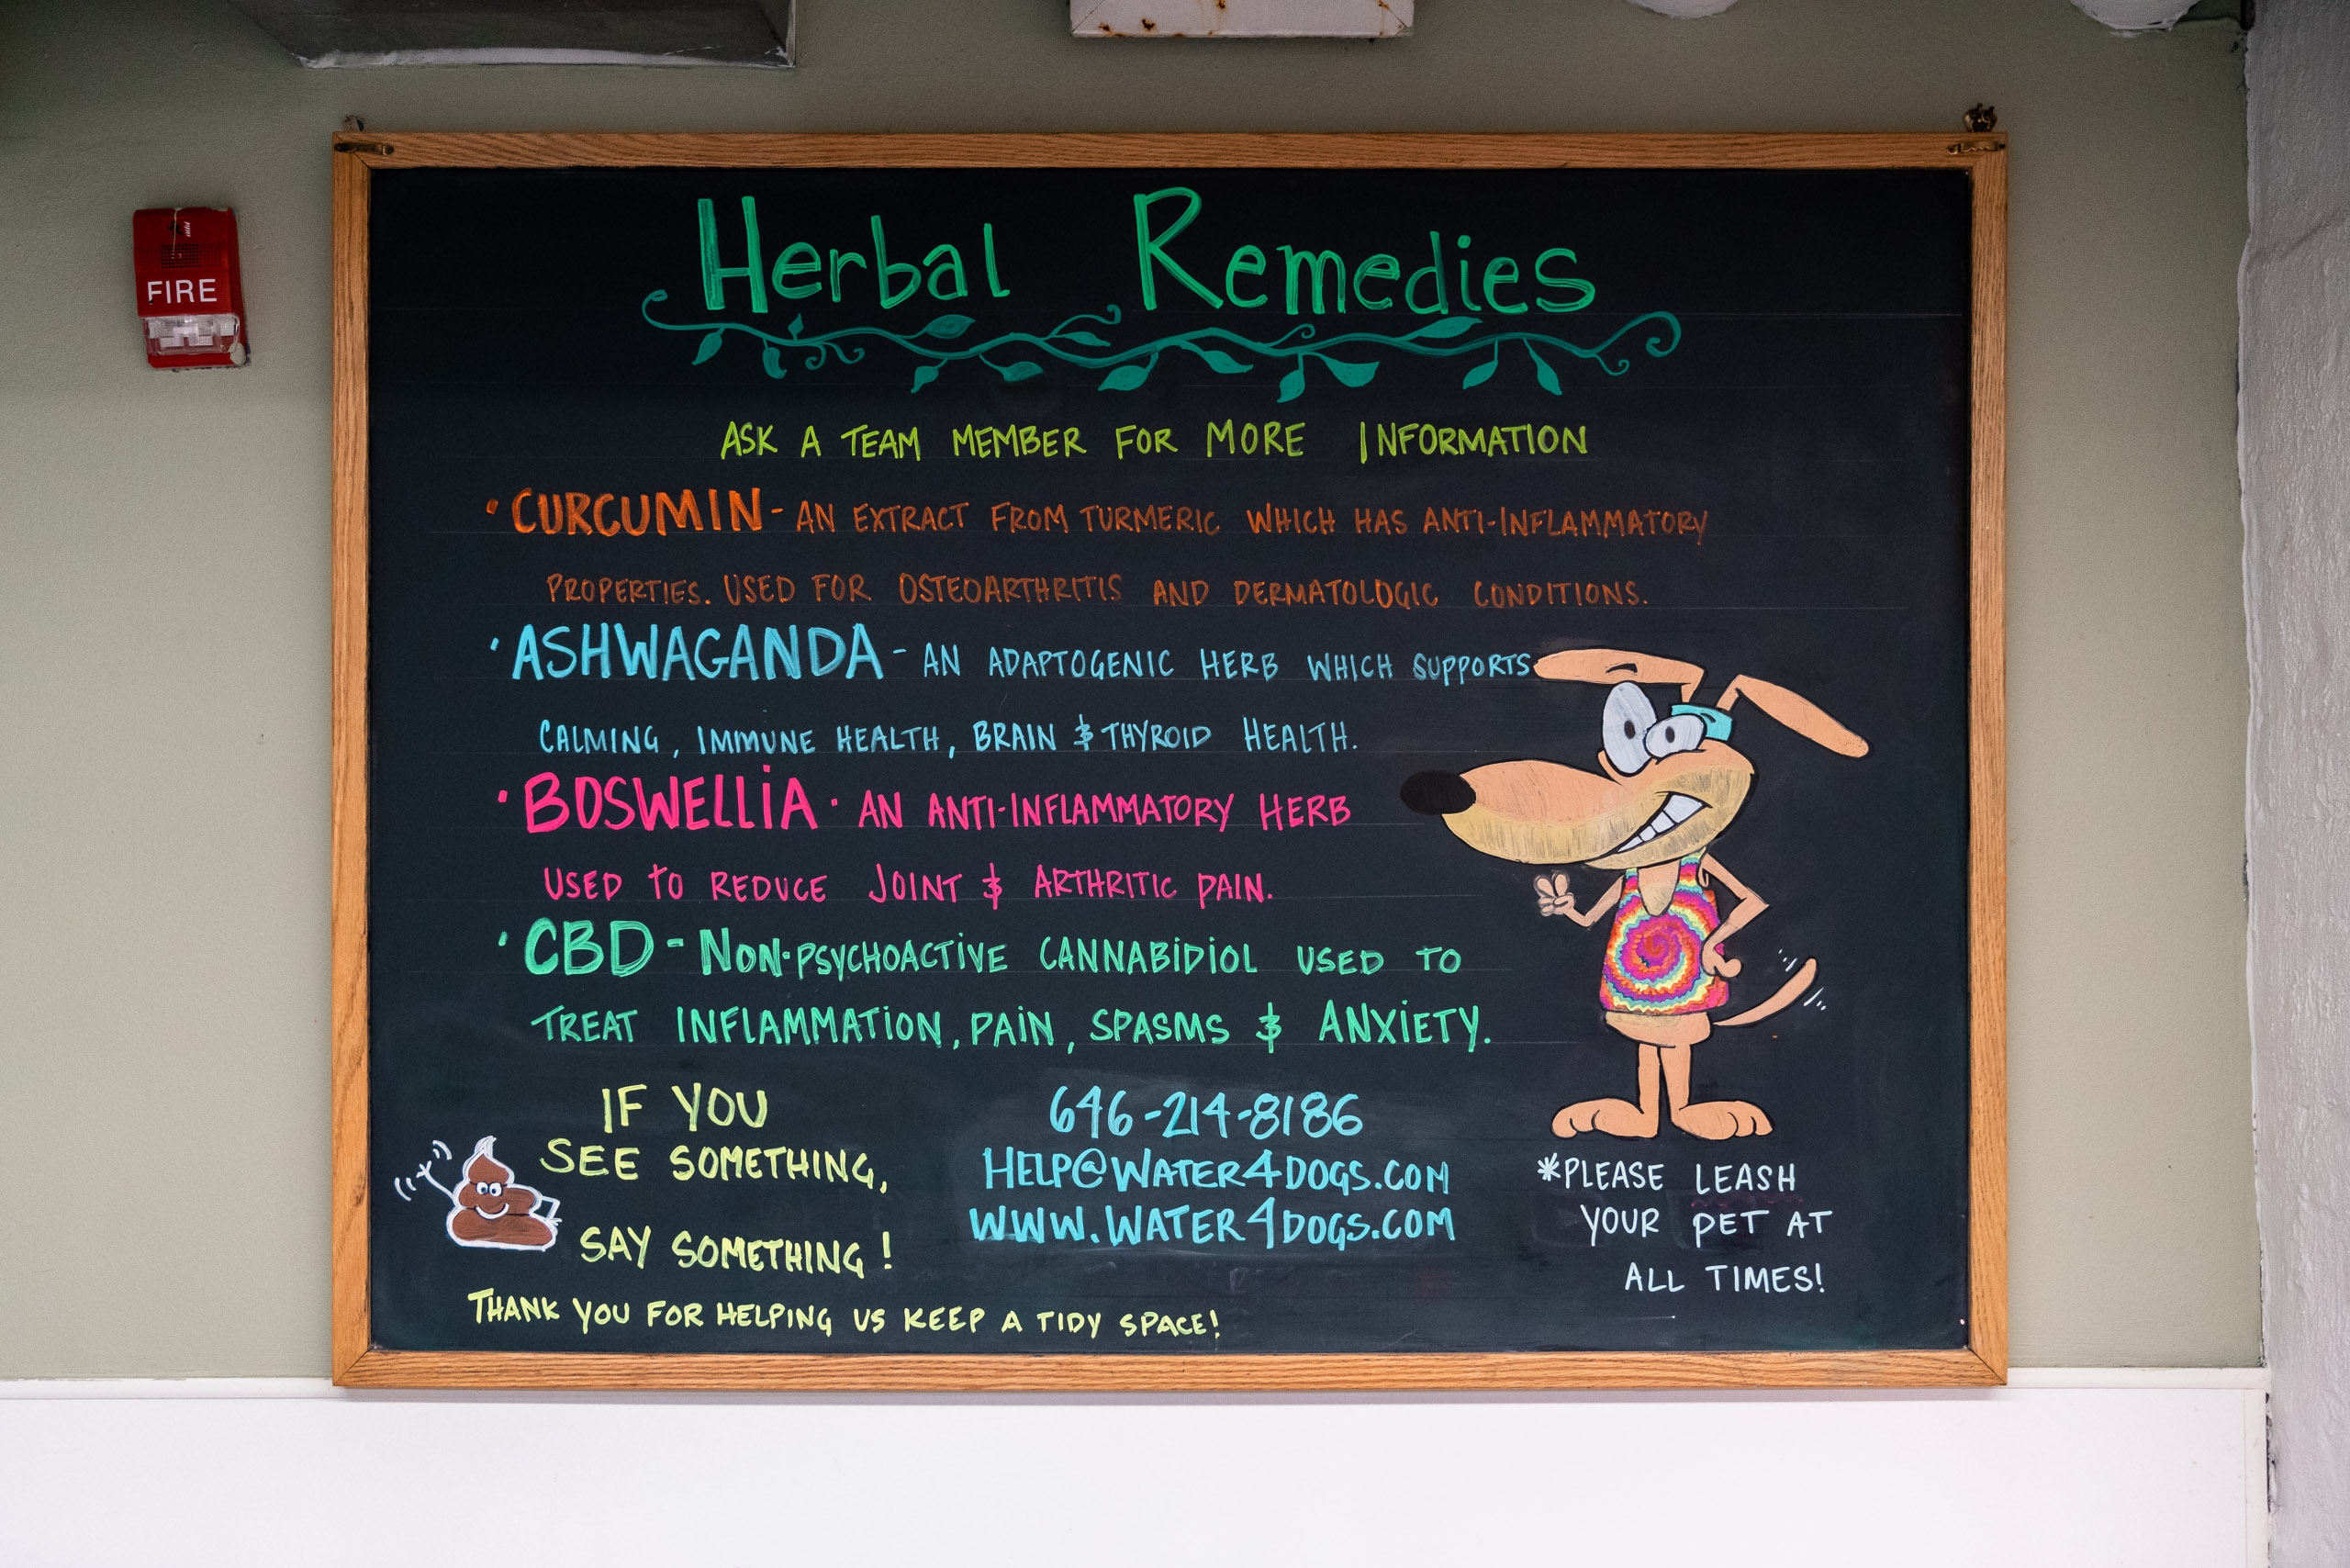 FIRE
Herbal Remedies
ASK A TEAM MEMBER FOR MORE INFORMATION
• CURCUMIN - AN EXTRACT FROM TURMERIC WHICH HAS ANTI-INFLAMMATORY
PROPERTIES. USED FOR OSTEOARTHRITIS AND DERMATOLOGIC CONDITIONS.
• ASHWAGANDA - AN ADAPTOGENIC HERB WHICH SUPPORTS
CALMING, IMMUNE HEALTH, BRAIN & THYROID HEALTH.
• BOSWELLiA • AN ANTI-INFLAMMATORY HERB
USED tO REDUCE JOINT & ARTHRITIC PAIN.
• CBD - NON-PSYCHOACTiVE CANNABiDiOL USED TO
TREAT INFLAMMATiON, PAiN, SPASMS & ANXiETY.
IF YOU
SEE SOMETHING,
SAY SOMETHING!
646-214-8186
HELP@WATER4DOGS.COM
WWW.WATER4DOGS.COM
*PLEASE LEASH
YOUR PET AT
ALL TIMES!
THANK YOU FOR HELPING US KEEP A TIDY SPACE!